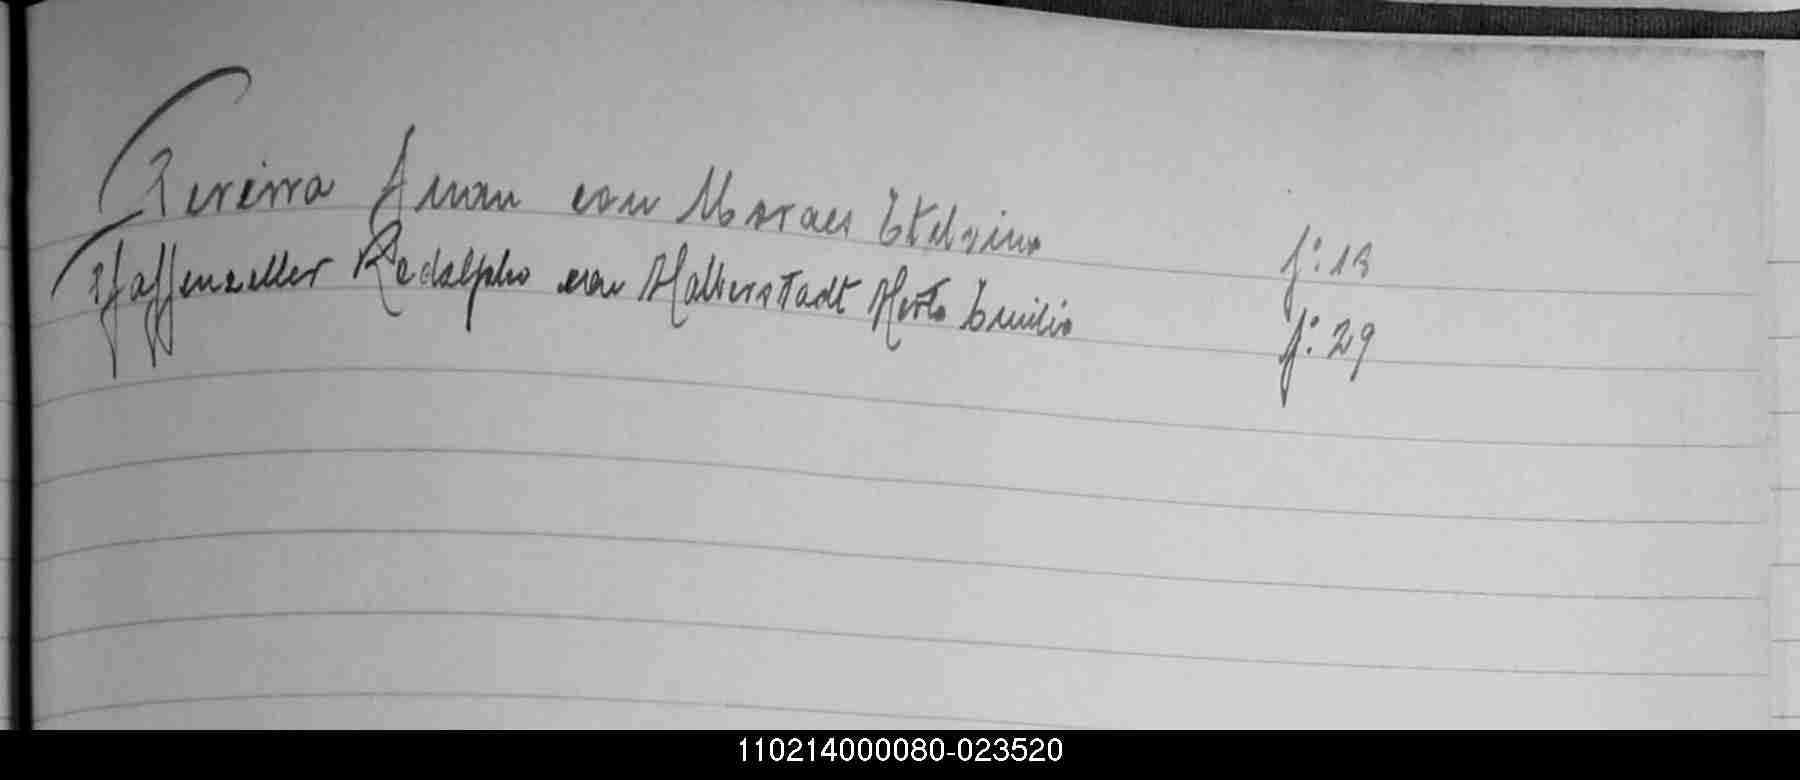 Pereira Juan con Moraes Etelvina f: 13
Pfaffenzeller Rodolpho con Halberstadt Herta Emilia f: 29
110214000080-023520